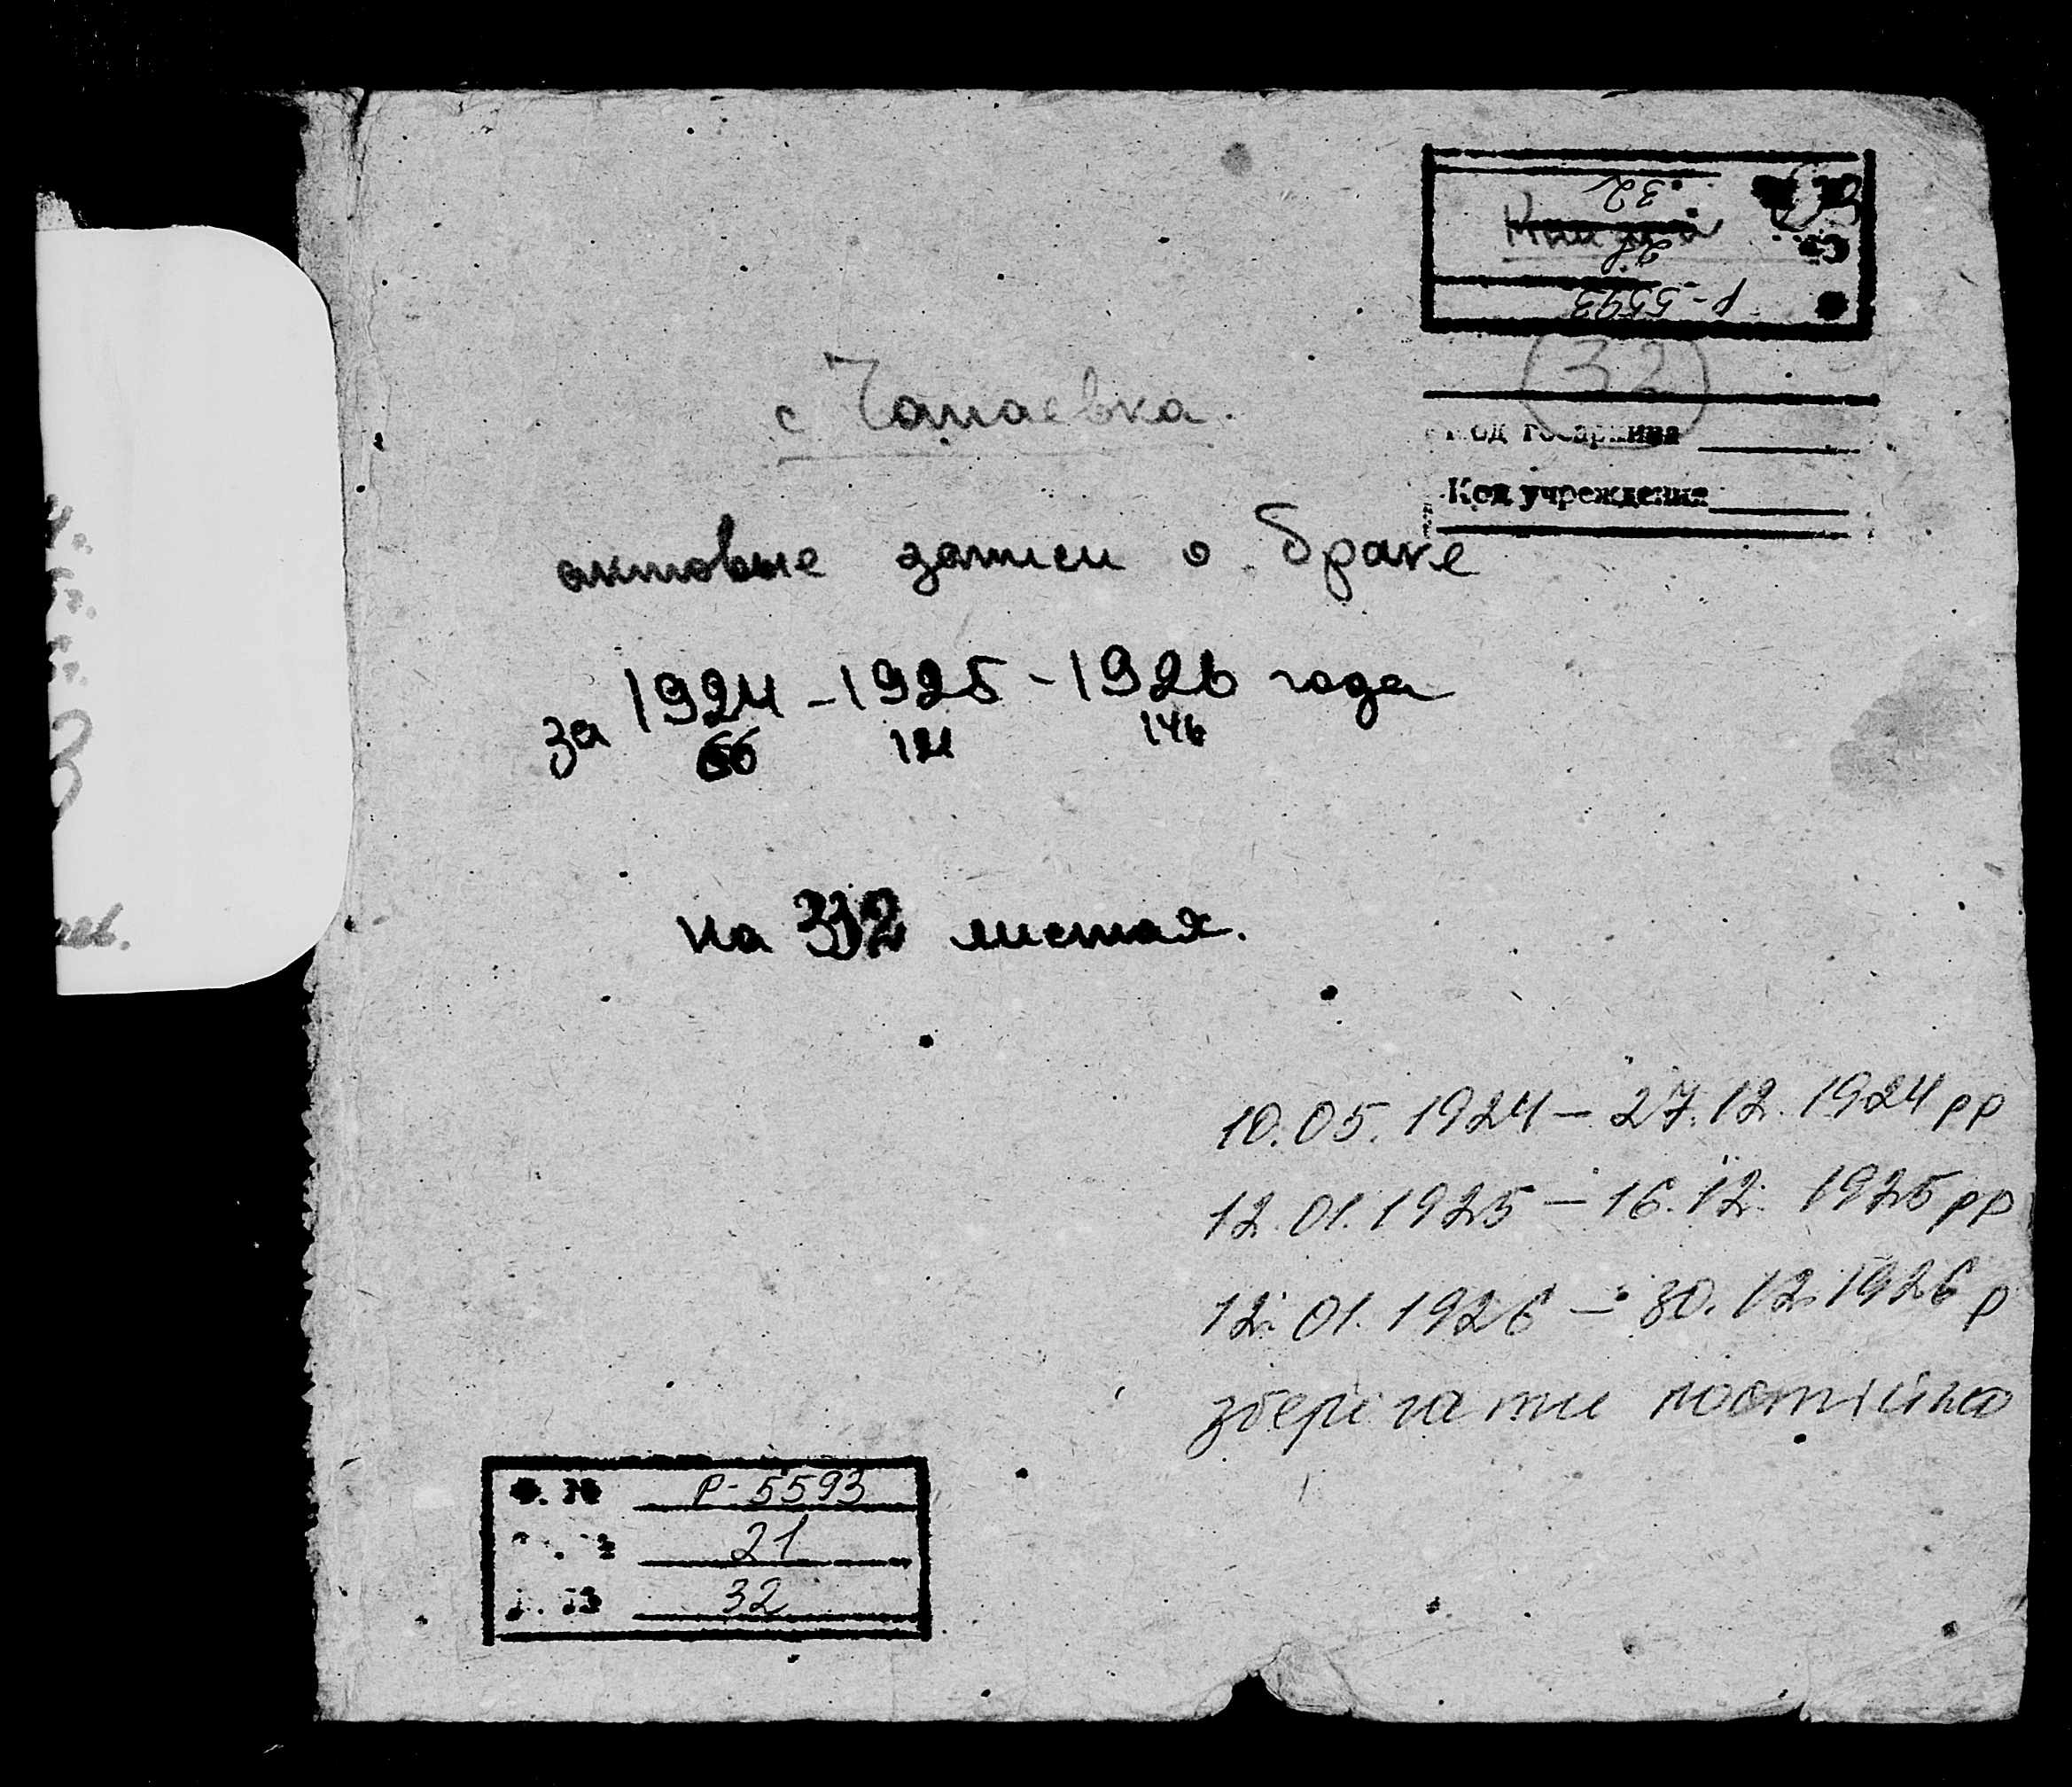 32
21
Р-5593
(32)
Код госархива
Код учреждения
с Чапаевка.
актовые записи о браке
за 1924 - 1925 - 1926 года
66 121 146
на 332 листах.
10.05.1924 – 27.12.1924 рр
12.01.1925 – 16.12.1925 рр
12.01.1926 – 30.12.1926 р
зберігати постійно
Ф. № Р-5593
21
32